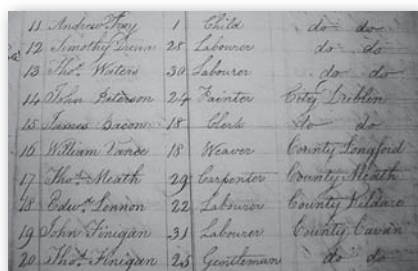 11 Andrew Frey 1 Child do do
12 Timothy Dunn 28 Labourer do do
13 Thos. Waters 30 Labourer do do
14 John Peterson 24 Painter City Dublin
15 James Bacon 18 Clerk do do
16 William Vance 18 Weaver County Longford
17 Thos. Meath 29 Carpenter County Meath
18 Edwd. Lennon 22 Labourer County Kildare
19 John Finigan 31 Labourer County Cavan
20 Thos. Finigan 25 Gentleman do do